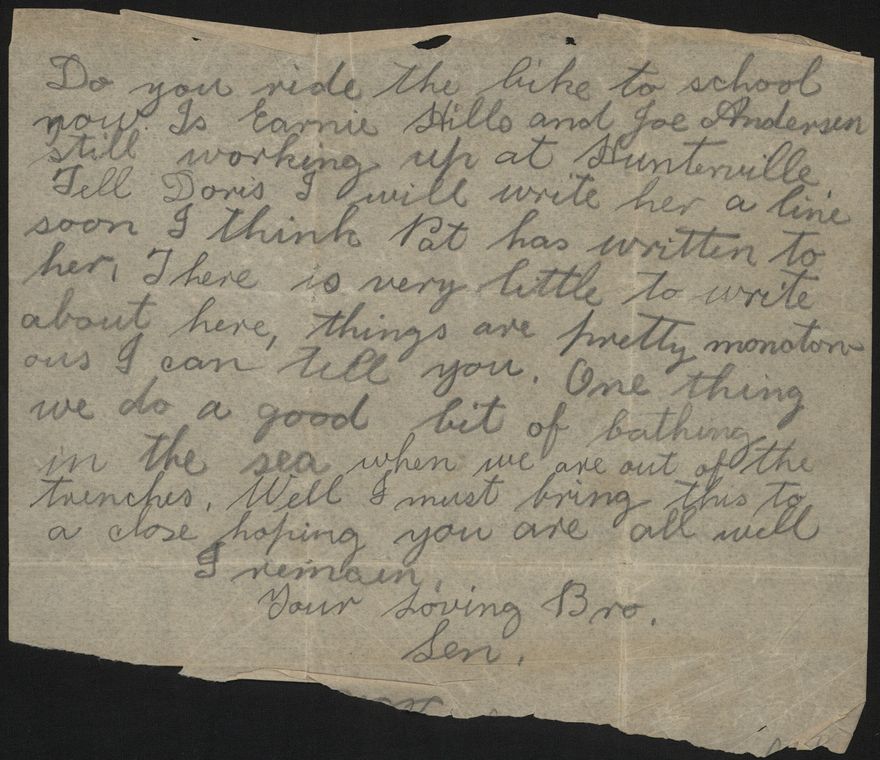 Do you ride the bike to school
now. Is Earnie Hills and Joe Andersen
still working up at Hunterville
Tell Doris I will write her a line
soon I think Pat has written to
her, There is very little to write
about here, things are pretty monoton-
ous I can tell you. One thing
we do a good bit of bathing
in the sea when we are out of the
trenches. Well I must bring this to
a close hoping you are all well
I remain,
Your Loving Bro.
Len.